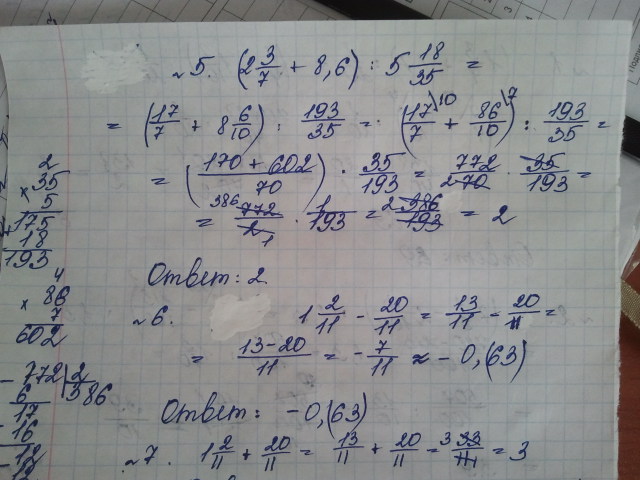 №5. (2 3/7 + 8,6) : 5 18/35 =
= (17/7 + 8 6/10) : 193/35 = (17\10/7 + 86\7/10) : 193/35 =
= (170 + 602/70) · 35/193 = 772/2 70 · 35/193 =
= 386 772/2 1 · 1/193 = 2 386/193 = 2
Ответ: 2.
№6. 1 2/11 - 20/11 = 13/11 - 20/11 =
= 13-20/11 = -7/11 ≈ -0,(63)
Ответ: -0,(63)
№7. 1 2/11 + 20/11 = 13/11 + 20/11 = 3 33/11 1 = 3
2
× 35
5
175
+ 18
193
4
× 86
7
602
- 772 | 2
6 386
17
- 16
12
- 12